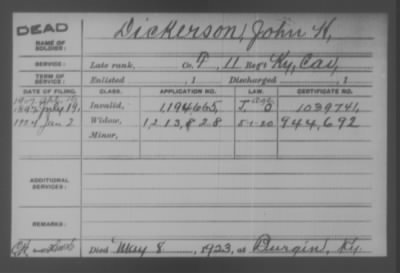 DEAD
Dickerson, John H,
NAME OF SOLDIER:
SERVICE: Late rank, Co. F, 11 Reg't Ky, Cav,
TERM OF SERVICE: Enlisted , 1 Discharged , 1
DATE OF FILING. CLASS. APPLICATION NO. LAW. CERTIFICATE NO.
1892 July 19, Invalid, 1,194,665, 1039741,
1924 Jan 2 Widow, 1,213,828 5-1-20 944,692
Minor,
ADDITIONAL SERVICES:
REMARKS:
Died May 8, 1923, at Durgin, Ky.